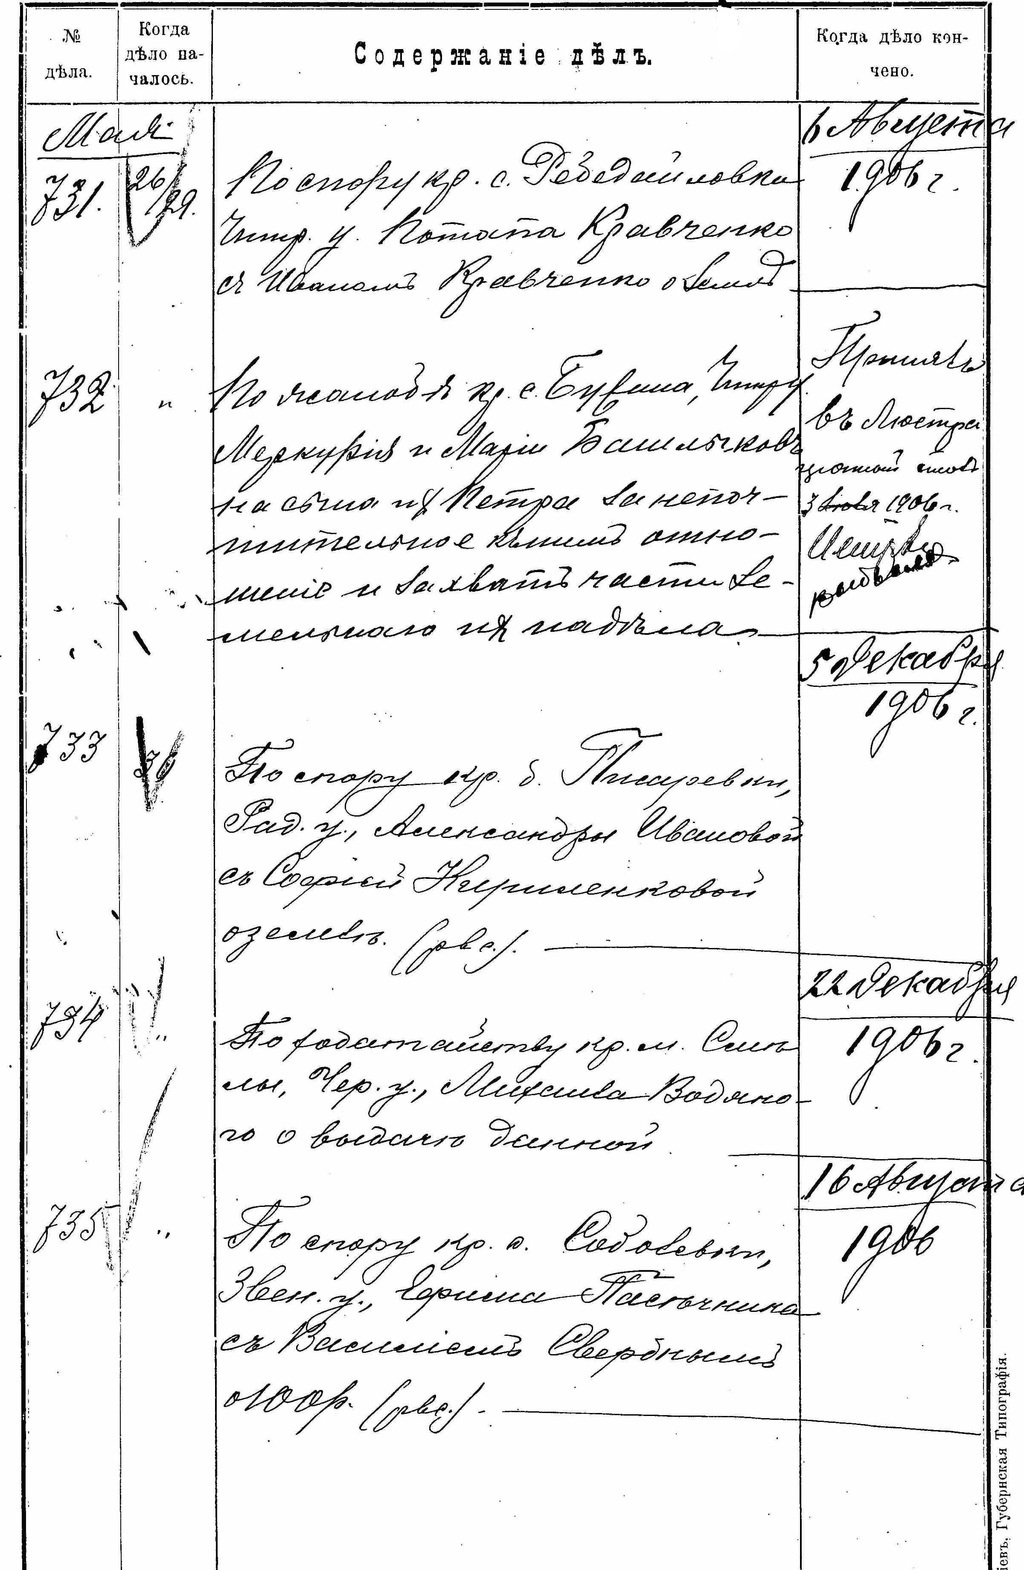 № дѣла.
Когда дѣло на-
чалось.
Содержаніе дѣлъ.
Когда дѣло кон-
чено.
Май
731.
26/29.
По спору кр. с. Ребедайловки
Чигир. у. Потапа Кравченко
съ Иваномъ Кравченко о землѣ
6 Августа
1906 г.
732
"
По жалобѣ кр. с. Бужина, Чигир. у.
Меркурія и Маріи
на сына ихъ Петра за непоч-
тительное къ нимъ отно-
шеніе и захватъ части зе-
мельнаго ихъ надѣла
въ Люстра
ціонный столъ
3 1906 г.
5 Декабря
1906 г.
733
По спору кр. д. Писаревки,
Рад. у., Александры Ивановой
съ Софіей Кириленковой
о землѣ. (рвс.).
22 Декабря
1906 г.
734
"
По ходатайству кр. м. Смѣ
лы, Чер. у., Михаила Водяно-
го о выдачѣ данной
16 Августа
1906
735
"
По спору кр. с. Соболевки,
Звен. у., Ефима Пасѣчника
съ Василіемъ Свербнымъ
о 100 р. (рвс.).
іевъ, Губернская Типографія.